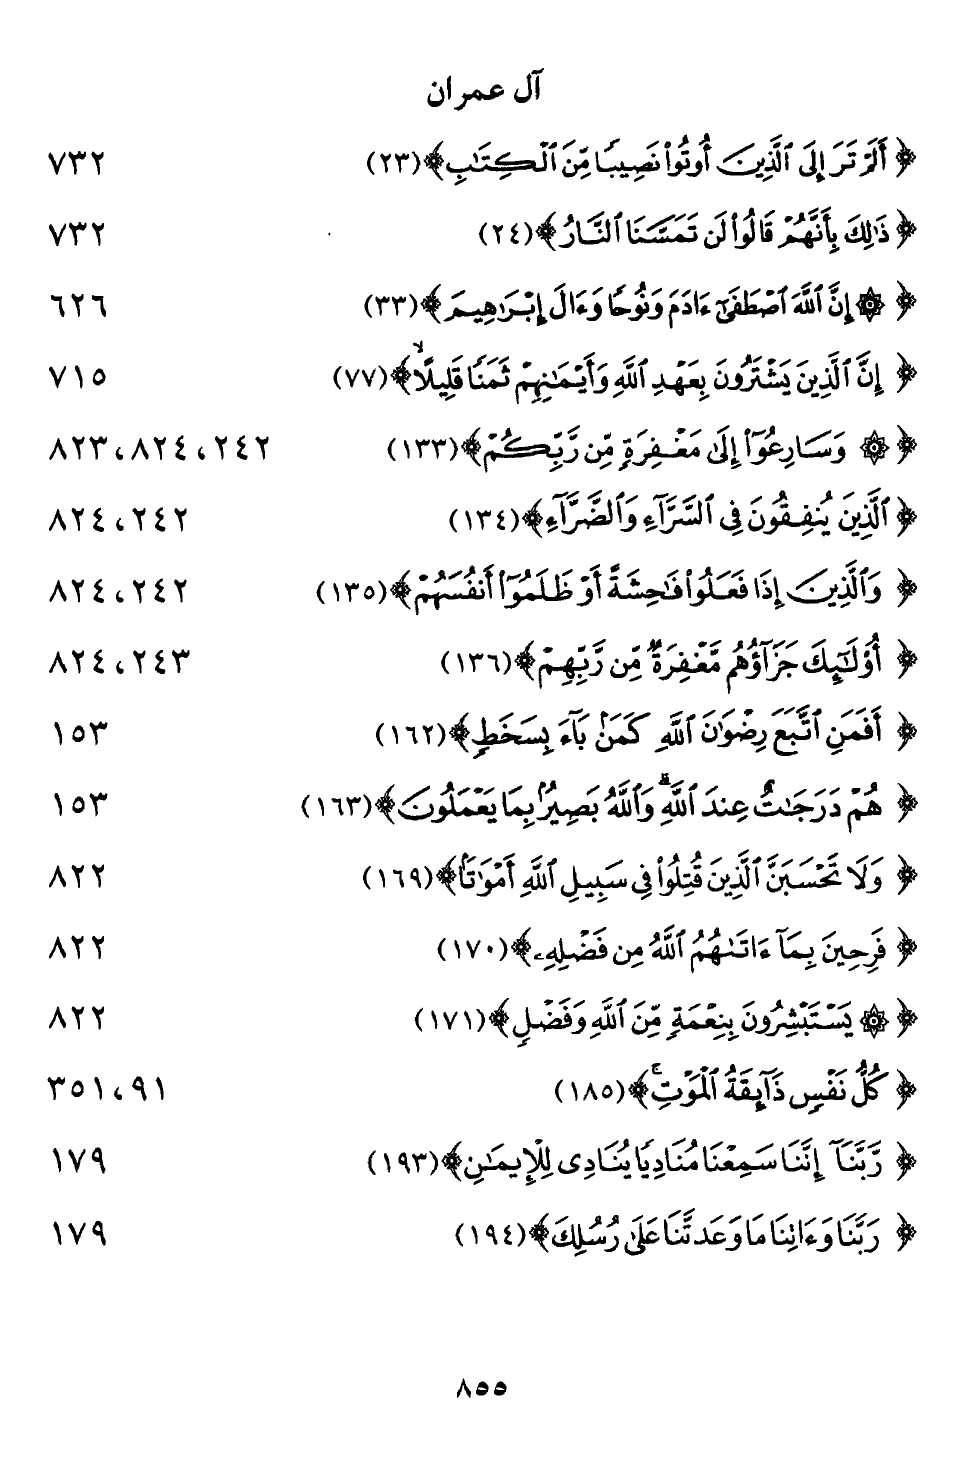 آل عمران
﴿ أَلَمْ تَرَ إِلَى ٱلَّذِينَ أُوتُوا۟ نَصِيبًا مِّنَ ٱلْكِتَـٰبِ ﴾ (٢٣) ٧٣٢
﴿ ذَٰلِكَ بِأَنَّهُمْ قَالُوا۟ لَن تَمَسَّنَا ٱلنَّارُ ﴾ (٢٤) ٧٣٢
﴿ ۞ إِنَّ ٱللَّهَ ٱصْطَفَىٰٓ ءَادَمَ وَنُوحًا وَءَالَ إِبْرَٰهِيمَ ﴾ (٣٣) ٦٢٦
﴿ إِنَّ ٱلَّذِينَ يَشْتَرُونَ بِعَهْدِ ٱللَّهِ وَأَيْمَـٰنِهِمْ ثَمَنًا قَلِيلًاۙ ﴾ (٧٧) ٧١٥
﴿ ۞ وَسَارِعُوٓا۟ إِلَىٰ مَغْفِرَةٍ مِّن رَّبِّكُمْ ﴾ (١٣٣) ٢٤٢، ٨٢٤، ٨٢٣
﴿ ٱلَّذِينَ يُنفِقُونَ فِى ٱلسَّرَّآءِ وَٱلضَّرَّآءِ ﴾ (١٣٤) ٢٤٢، ٨٢٤
﴿ وَٱلَّذِينَ إِذَا فَعَلُوا۟ فَـٰحِشَةً أَوْ ظَلَمُوٓا۟ أَنفُسَهُمْ ﴾ (١٣٥) ٢٤٢، ٨٢٤
﴿ أُو۟لَـٰٓئِكَ جَزَآؤُهُم مَّغْفِرَةٌ مِّن رَّبِّهِمْ ﴾ (١٣٦) ٢٤٣، ٨٢٤
﴿ أَفَمَنِ ٱتَّبَعَ رِضْوَٰنَ ٱللَّهِ كَمَنۢ بَآءَ بِسَخَطٍ ﴾ (١٦٢) ١٥٣
﴿ هُمْ دَرَجَـٰتٌ عِندَ ٱللَّهِۗ وَٱللَّهُ بَصِيرٌۢ بِمَا يَعْمَلُونَ ﴾ (١٦٣) ١٥٣
﴿ وَلَا تَحْسَبَنَّ ٱلَّذِينَ قُتِلُوا۟ فِى سَبِيلِ ٱللَّهِ أَمْوَٰتًۢا ﴾ (١٦٩) ٨٢٢
﴿ فَرِحِينَ بِمَآ ءَاتَىٰهُمُ ٱللَّهُ مِن فَضْلِهِۦ ﴾ (١٧٠) ٨٢٢
﴿ ۞ يَسْتَبْشِرُونَ بِنِعْمَةٍ مِّنَ ٱللَّهِ وَفَضْلٍ ﴾ (١٧١) ٨٢٢
﴿ كُلُّ نَفْسٍ ذَآئِقَةُ ٱلْمَوْتِۚ ﴾ (١٨٥) ٩١، ٣٥١
﴿ رَّبَّنَآ إِنَّنَا سَمِعْنَا مُنَادِيًا يُنَادِى لِلْإِيمَـٰنِ ﴾ (١٩٣) ١٧٩
﴿ رَبَّنَا وَءَاتِنَا مَا وَعَدتَّنَا عَلَىٰ رُسُلِكَ ﴾ (١٩٤) ١٧٩
٨٥٥